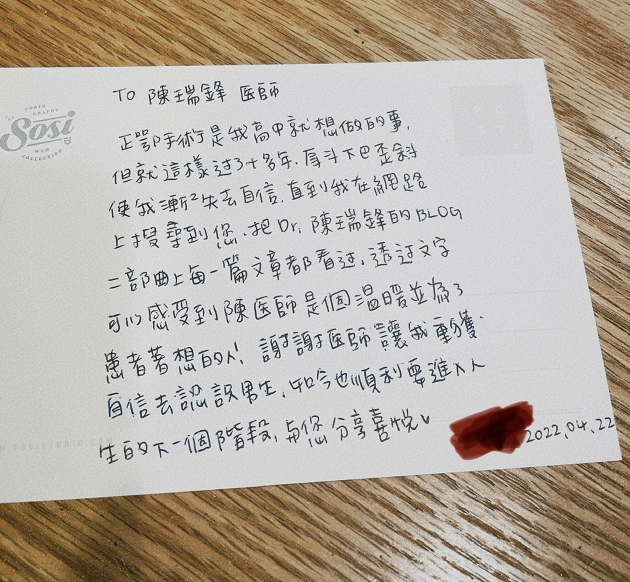 SONIC
GRAPHY
Sosi
WEB
COLLECTION
TO 陳瑞鋒 医師
正鄂手術是我高中就想做的事,
但就這樣过了十多年,厚斗下巴歪斜
使我漸漸失去自信,直到我在網路
上搜尋到您,把Dr.陳瑞鋒的BLOG
二部曲上每一篇文章都看过,透过文字
可以感受到陳医師是個温暖並為了
患者著想的人!謝謝医師讓我重獲
自信去認識男生,如今也順利要進入人
生的下一個階段,与您分享喜悅♥
2022.04.22